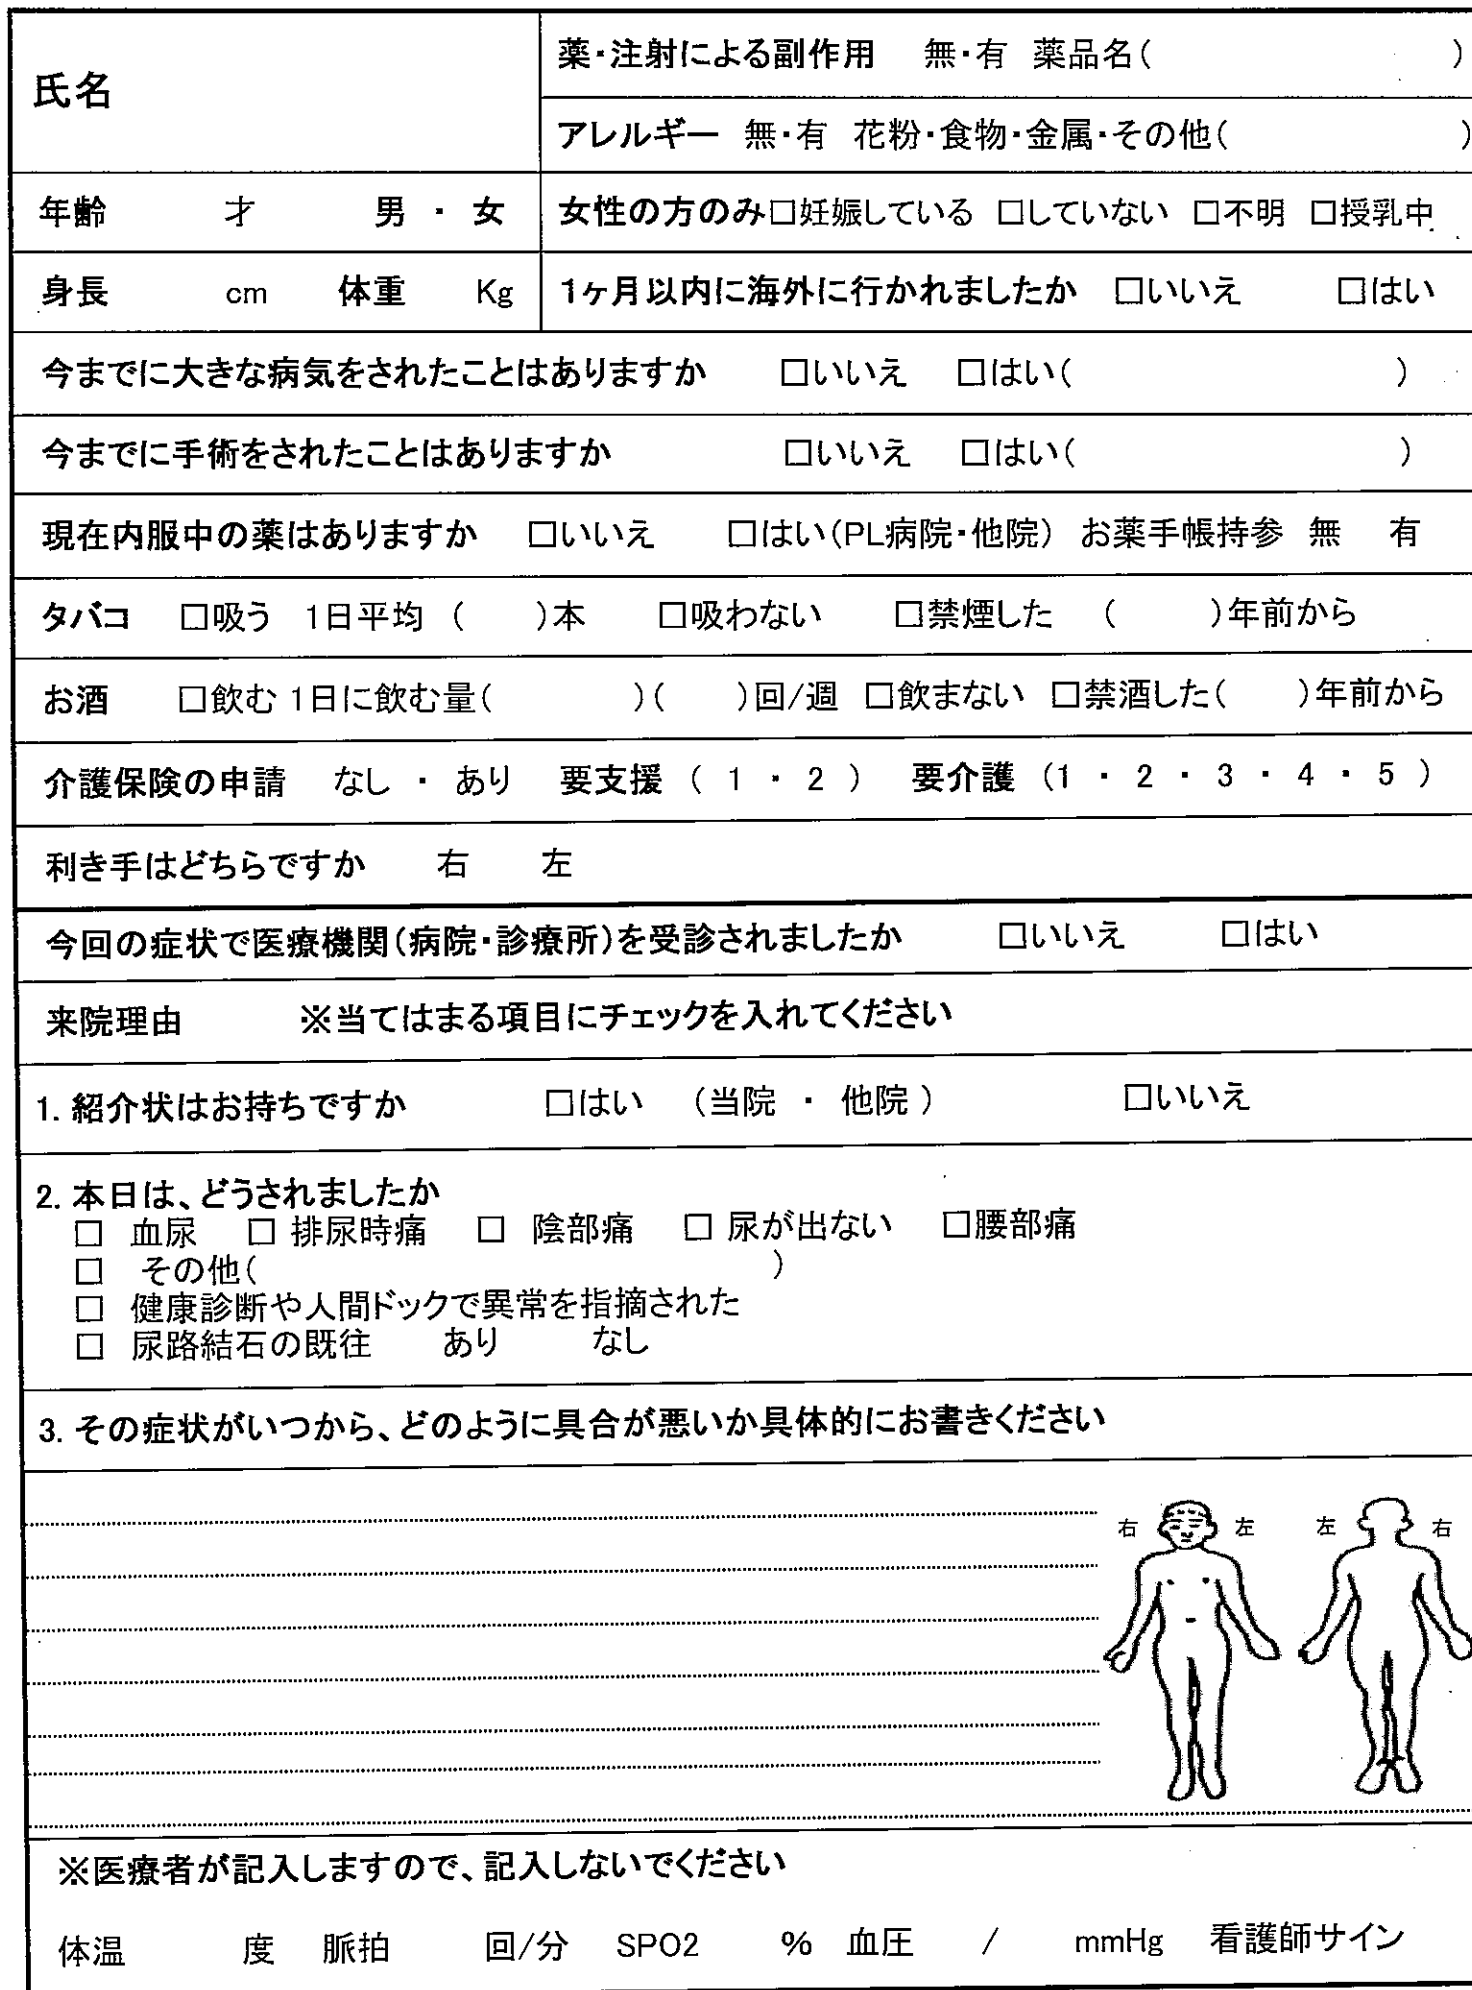 氏名
薬・注射による副作用 無・有 薬品名( )
アレルギー 無・有 花粉・食物・金属・その他( )
年齢 才 男 ・ 女 女性の方のみ□妊娠している □していない □不明 □授乳中
身長 cm 体重 Kg 1ヶ月以内に海外に行かれましたか □いいえ □はい
今までに大きな病気をされたことはありますか □いいえ □はい( )
今までに手術をされたことはありますか □いいえ □はい( )
現在内服中の薬はありますか □いいえ □はい(PL病院・他院) お薬手帳持参 無 有
タバコ □吸う 1日平均 ( )本 □吸わない □禁煙した ( )年前から
お酒 □飲む 1日に飲む量( )( )回/週 □飲まない □禁酒した( )年前から
介護保険の申請 なし ・ あり 要支援 ( 1 ・ 2 ) 要介護 (1 ・ 2 ・ 3 ・ 4 ・ 5 )
利き手はどちらですか 右 左
今回の症状で医療機関(病院・診療所)を受診されましたか □いいえ □はい
来院理由 ※当てはまる項目にチェックを入れてください
1. 紹介状はお持ちですか □はい (当院 ・ 他院 ) □いいえ
2. 本日は、どうされましたか
□ 血尿 □ 排尿時痛 □ 陰部痛 □ 尿が出ない □腰部痛
□ その他( )
□ 健康診断や人間ドックで異常を指摘された
□ 尿路結石の既往 あり なし
3. その症状がいつから、どのように具合が悪いか具体的にお書きください
右 左 左 右
※医療者が記入しますので、記入しないでください
体温 度 脈拍 回/分 SPO2 % 血圧 / mmHg 看護師サイン